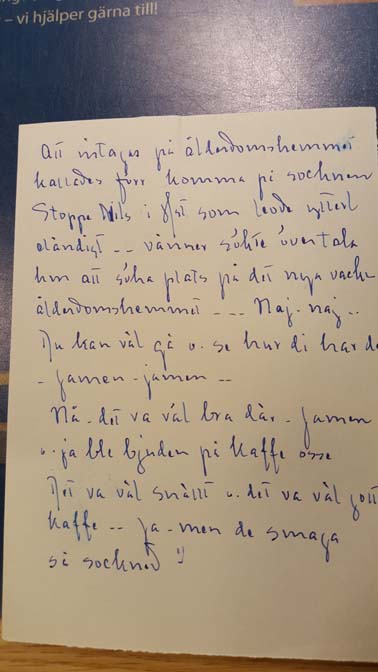 – vi hjälper gärna till!
Att intagas på ålderdomshemmet
kallades förr komma på socknen
Stoppe Nils i som levde ytterl
eländigt -- vänner sökte övertala
hm att söka plats på det nya vack
ålderdomshemmet --- Naj-naj --
Du kan väl gå o. se hur di har de
- jamen - jamen --
Nå - det va väl bra där - jamen
o. ja ble bjuden på kaffe osse
Det va väl snällt o. det va väl gott
kaffe -- ja - men de smaga
så sockned "